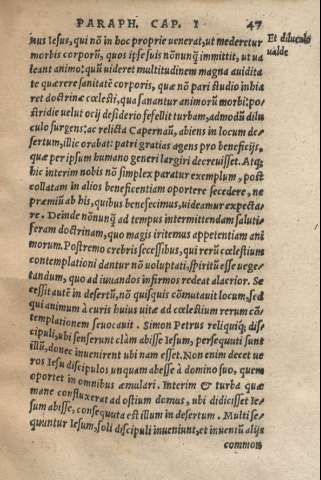 PARAPH. CAP. I 47
nus Iesus, qui nõ in hoc proprie venerat, ut mederetur
Et diluculo
morbis corporũ, quos ipse suis nõnunq̃ immittit, ut va
valde
leant animo: quũ videret multitudinem magna avidita
te quærere sanitatẽ corporis, quæ nõ pari studio inhia
ret doctrinæ cœlesti, qua sanantur animorũ morbi: po
stridie velut ocij desiderio fefellit turbam, admodũ dilu
culo surgens: ac relicta Capernaũ, abiens in locum de=
sertum, illic orabat: patri gratias agens pro beneficijs,
quæ per ipsum humano generi largiri decrevisset. Atq;
hic interim nobis nõ simplex paratur exemplum, post
collatam in alios beneficentiam oportere secedere, ne
præmiũ ab his, quibus benefecimus, videamur expecta=
re. Deinde nõnunq̃ ad tempus intermittendam saluti=
feram doctrinam, quo magis iritemus appetentiam ani
morum. Postremo crebris secessibus, qui rerũ cœlestium
contemplationi dantur nõ voluptati, spiritũ esse vege=
tandum, quo ad iuvandos infirmos redeat alacrior. Se
cessit autẽ in desertũ, nõ quisquis cõmutavit locum, sed
qui animum à curis huius vitæ ad cœlestium rerum cõ=
templationem sevocavit. Simon Petrus reliquiq; dis=
cipuli, ubi senserunt clàm abisse Iesum, persequuti sunt
illũ, donec invenirent ubi nam esset. Non enim decet ve
ros Iesu discipulos unquam abesse à domino suo, quem
oportet in omnibus æmulari. Interim & turba quæ
mane confluxerat ad ostium domus, ubi didicisset Ie=
sum abisse, consequuta est illum in desertum. Multi se=
quuntur Iesum, soli discipuli inveniunt, et inventũ alijs
common